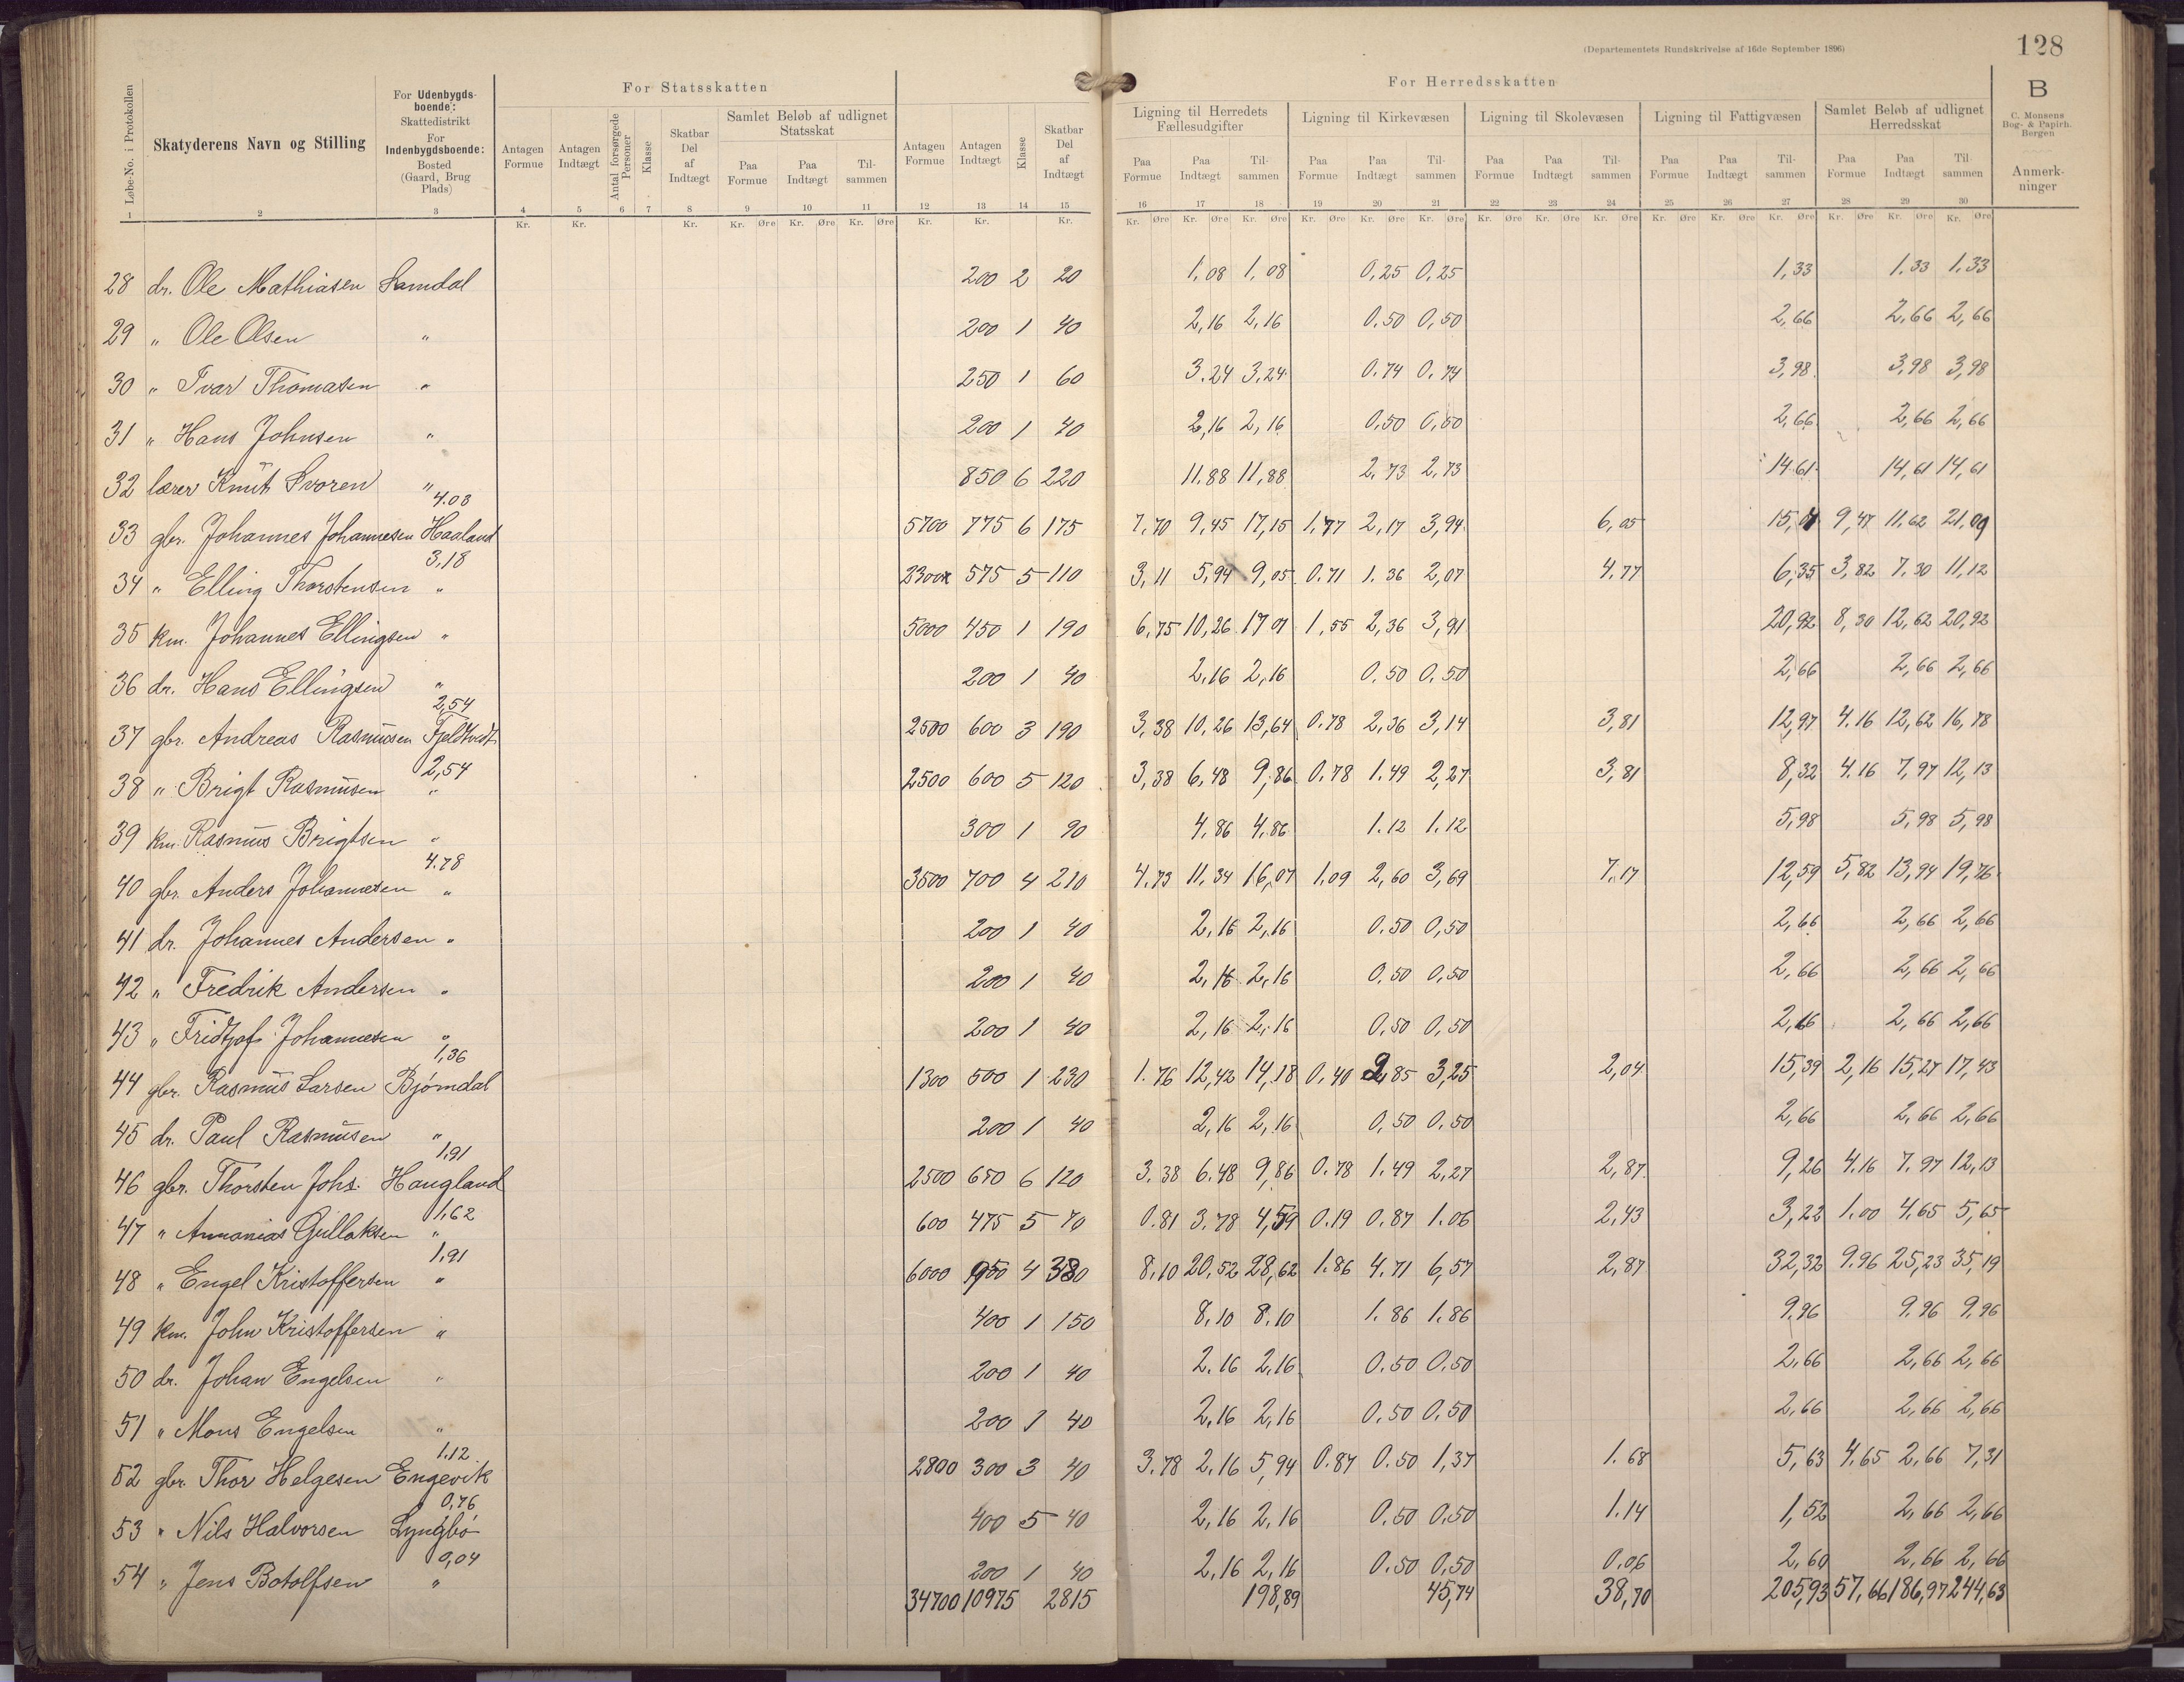 (Departementets Rundskrivelse af 16de September 1896)
128
Løbe-No. i Protokollen
Skatyderens Navn og Stilling
For Udenbygds-
boende:
Skattedistrikt
For
Indenbygdsboende:
Bosted
(Gaard, Brug
Plads)
For Statsskatten
Antagen
Formue
Antagen
Indtægt
Antal forsørgede
Personer
Klasse
Skatbar
Del
af
Indtægt
Samlet Beløb af udlignet
Statsskat
Paa
Formue
Paa
Indtægt
Til-
sammen
Antagen
Formue
Antagen
Indtægt
Klasse
Skatbar
Del
af
Indtægt
For Herredsskatten
Ligning til Herredets
Fællesudgifter
Ligning til Kirkevæsen
Ligning til Skolevæsen
Ligning til Fattigvæsen
Samlet Beløb af udlignet
Herredsskat
Paa Formue Paa Indtægt Til-sammen Paa Formue Paa Indtægt Til-sammen Paa Formue Paa Indtægt Til-sammen Paa Formue Paa Indtægt Til-sammen Paa Formue Paa Indtægt Til-sammen
B
C. Monsens
Bog- & Papirh.
Bergen
Anmerk-
ninger
1 2 3 4 5 6 7 8 9 10 11 12 13 14 15 16 17 18 19 20 21 22 23 24 25 26 27 28 29 30
Kr. Kr. Kr. Kr. Øre Kr. Øre Kr. Øre Kr. Kr. Kr. Kr. Øre Kr. Øre Kr. Øre Kr. Øre Kr. Øre Kr. Øre Kr. Øre Kr. Øre Kr. Øre Kr. Øre Kr. Øre Kr. Øre Kr. Øre Kr. Øre Kr. Øre
28 dr. Ole Mathiasen Samdal 200 2 20 1,08 1,08 0,25 0,25 1,33 1,33 1.33
29 " Ole Olsen " 200 1 40 2,16 2,16 0.50 0,50 2,66 2,66 2,66
30 " Ivar Thomasen " 250 1 60 3.24 3,24 0.74 0.74 3,98 3,98 3,98
31 " Hans Johnsen " 200 1 40 2,16 2,16 0,50 0,50 2,66 2,66 2,66
32 lærer Knut Svoren " 850 6 220 11.88 11,88 2,73 2,73 14.61 14,61 14,61
4.03
33 gbr. Johannes Johannesen Haaland 5700 775 6 175 7,70 9,45 17,15 1,77 2,17 3,94 6,05 15,04 9,47 11,62 21,09
3,18
34 " Elling Thorstensen " 2300 575 5 110 3,11 5,94 9,05 0.71 1.36 2,07 4.77 6,35 3,82 7.30 11,12
35 km. Johannes Ellingsen " 5000 450 1 190 6,75 10,26 17 01 1,55 2,36 3,91 20,92 8,30 12,62 20,92
36 dr. Hans Ellingsen " 200 1 40 2,16 2,16 0.50 0.50 2,66 2,66 2,66
2,54
37 gbr. Andreas Rasmusen Fjeldtvedt 2500 600 3 190 3,38 10,26 13,64 0.78 2,36 3,14 3,81 12,97 4.16 12,62 16,78
2,54
38 " Brigt Rasmusen " 2500 600 5 120 3,38 6,48 9,86 0.78 1.49 2,27 3,81 8,32 4.16 7,97 12,13
39 km. Rasmus Brigtsen " 300 1 90 4,86 4,86 1.12 1.12 5,98 5,98 5,98
4.78
40 gbr. Anders Johannesen " 3500 700 4 210 4.73 11,34 16,07 1,09 2,60 3,69 7,17 12,59 5,82 13,94 19,76
41 dr. Johannes Andersen " 200 1 40 2,16 2,16 0.50 0,50 2,66 2,66 2,66
42 " Fredrik Andersen " 200 1 40 2,16 2,16 0,50 0,50 2,66 2,66 2,66
43 " Fridtjof Johannesen " 200 1 40 2,16 2,16 0,50 0,50 2,66 2,66 2,66
1,36
44 gbr. Rasmus Larsen Bjørndal 1300 500 1 230 1.76 12,42 14,18 0,40 2,85 3,25 2,04 15,39 2,16 15,27 17,43
45 dr. Paul Rasmusen " 200 1 40 2,16 2,16 0,50 0.50 2,66 2,66 2,66
1,91
46 gbr. Thorsten Johs. Haugland 2500 650 6 120 3,38 6.48 9,86 0.78 1.49 2,27 2,87 9,26 4.16 7.97 12,13
1,62
47 " Annanias Gullaksen " 600 475 5 70 0.81 3.78 4,59 0.19 0.87 1.06 2,43 3,22 1.00 4,65 5,65
1,91
48 " Engel Kristoffersen " 6000 950 4 380 8,10 20,52 28,62 1.86 4.71 6,57 2,87 32,32 9.96 25,23 35,19
49 km. John Kristoffersen " 400 1 150 8,10 8.10 1.86 1.86 9,96 9.96 9.96
50 dr. Johan Engelsen " 200 1 40 2.16 2,16 0.50 0.50 2,66 2,66 2,66
51 " Mons Engelsen " 200 1 40 2,16 2,16 0.50 0.50 2,66 2,66 2,66
1.12
52 gbr. Thor Helgesen Engevik 2800 300 3 40 3.78 2,16 5,94 0.87 0.50 1,37 1.68 5,63 4.65 2,66 7,31
0,76
53 " Nils Halvorsen Lyngbø 400 5 40 2,16 2,16 0.50 0.50 1.14 1,52 2,66 2,66
0,04
54 " Jens Botolfsen " 200 1 40 2,16 2,16 0.50 0,50 0.06 2,60 2,66 2,66
34700 10975 2815 198,89 45,74 38,70 205,93 57,66 186,97 244,63